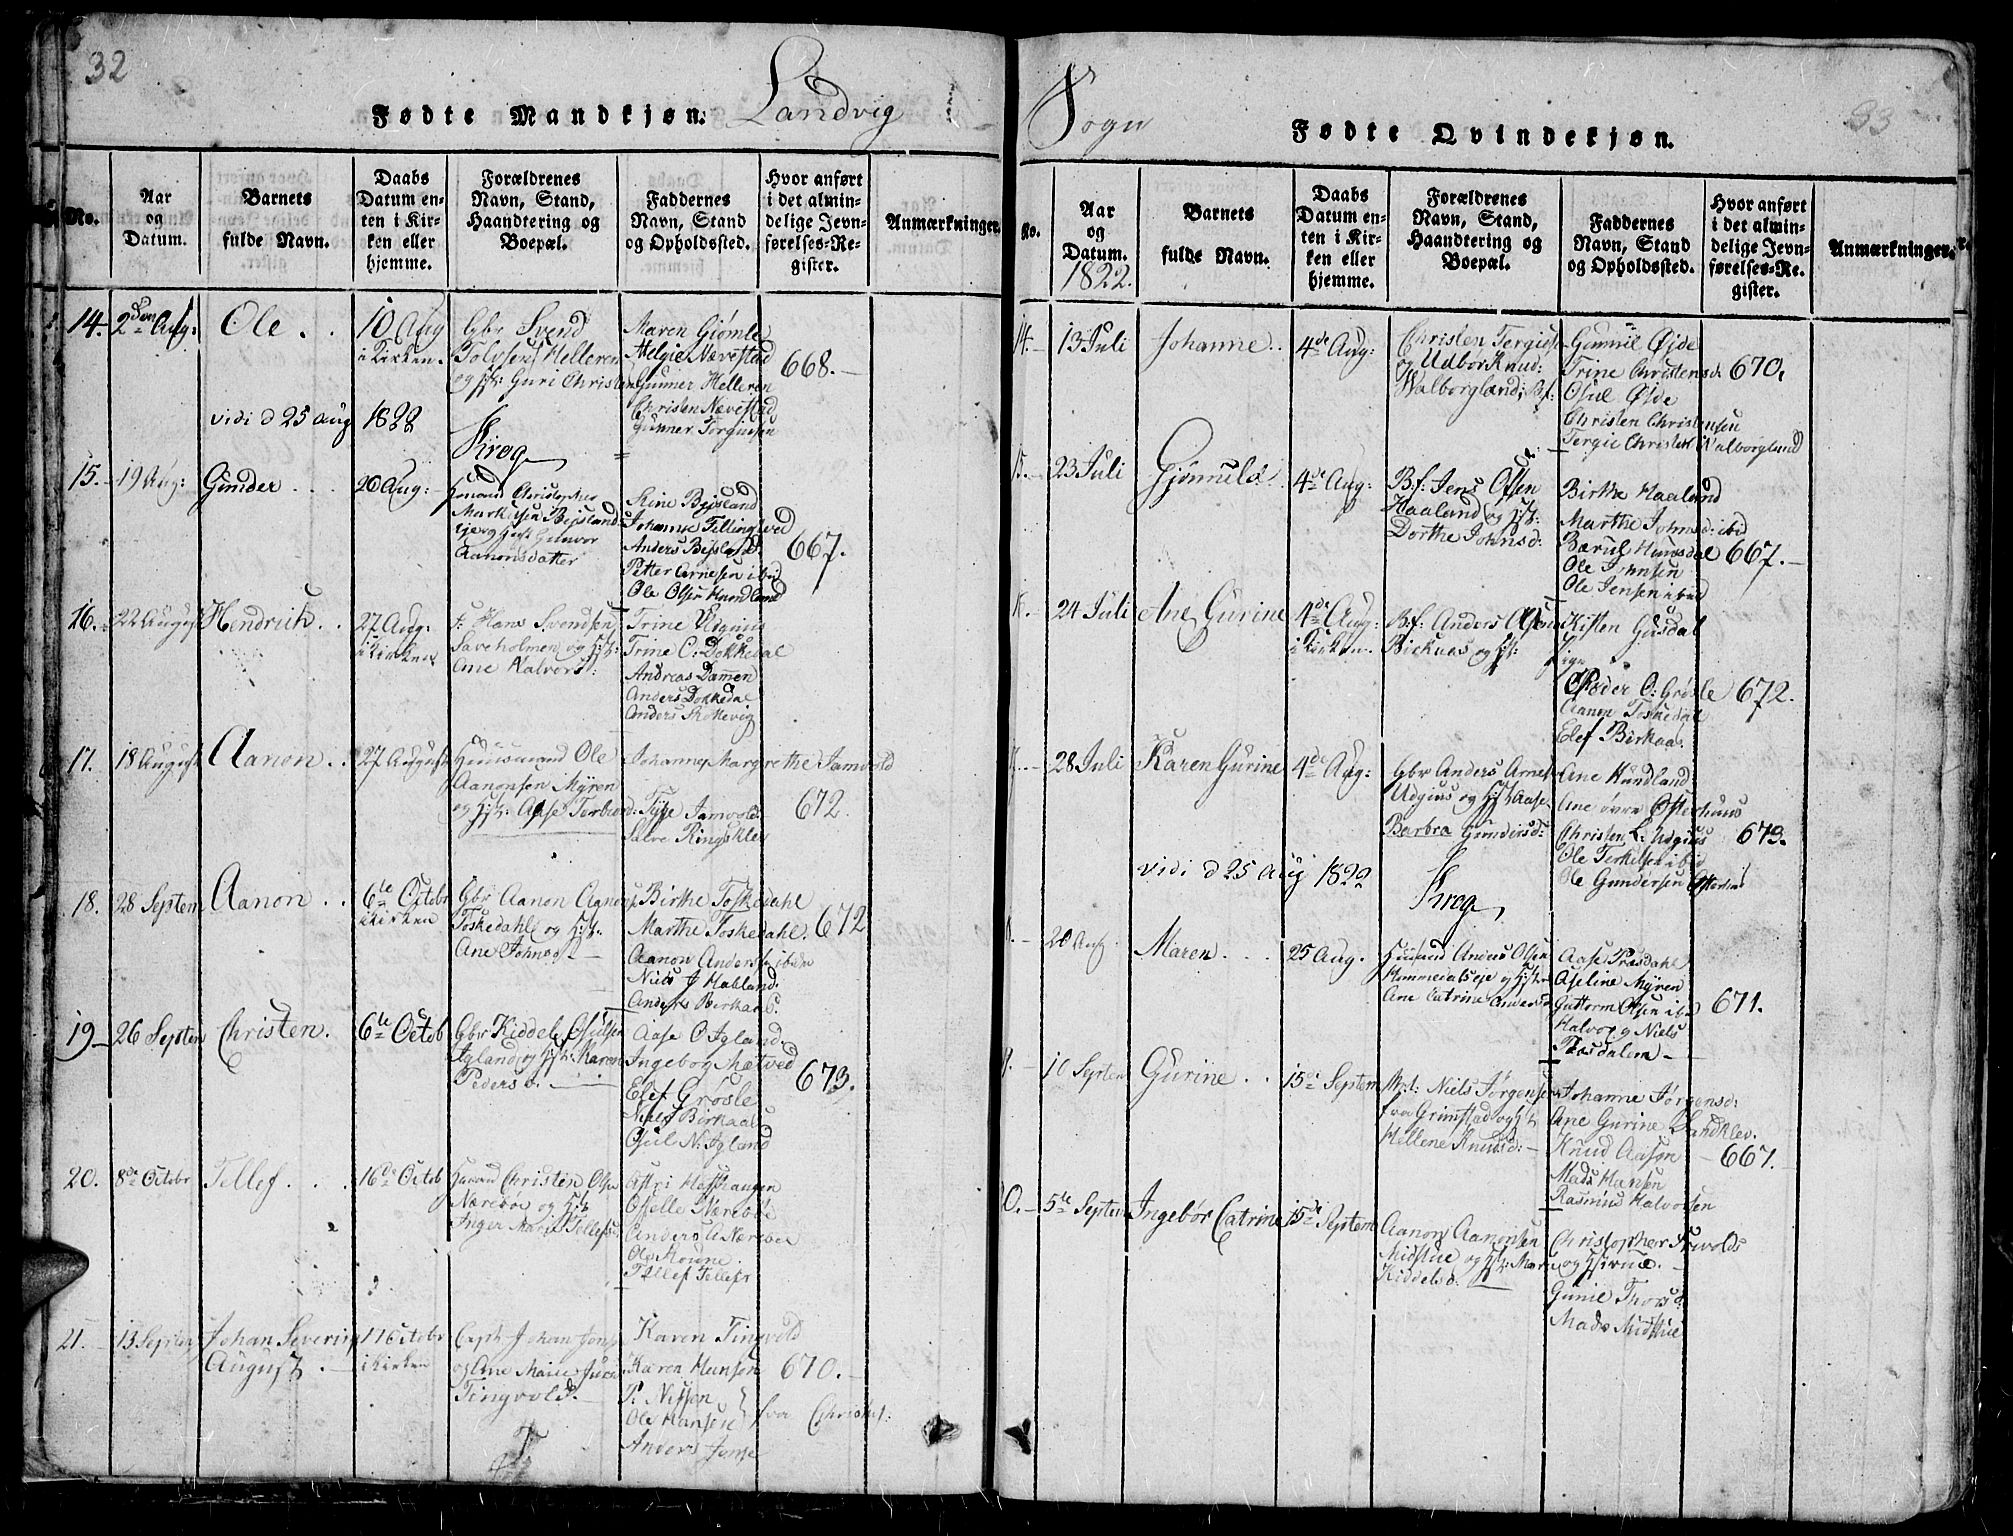 32
Fødte Mandkjøn. Landvig
No.
Aar og Datum.
Barnets fulde Navn.
Daabs Datum enten i Kirken eller hjemme.
Forældrenes Navn, Stand, Haandtering og Boepæl.
Faddernes Navn, Stand og Opholdssted.
Hvor anført i det almindelige Jevnførelses-Register.
Anmærkninger.
14. 2den Aug: Ole 10 Aug i Kirken.
Gbr Svend
Tolvsens Helleren
og H: Guri Christen
Maren Gjømle
Helgie Nævestad
Gunner Helleren
Christen Nævestad
Gunner Torgiusen
668.
vidi d 25 Aug 1822
Krog
15. 19 Aug: Gunder 20 Aug:
Christopher
Beisland
Gunvor
Aanonsdatter
Stine Beisland
Johanne Fellingsved
Anders Beisland
Petter Arnesen ibid
Ole Olsen
667.
16. 22 August Hendrich 27 Aug: i Kirken
Hans Svendsen
Saveholmen og H:
Ane Halvors:
Trine Udginis
Trine C: Dokkedal
Andreas Damen
Anders Dokkedal
Anders Stokkevig
17. 18 August Aanon 27 August
Huusmand Ole
Aanonsen Myren
og H: Aase
Johanne Margrethe Jamvold
Tyge Jamvold
Salve Ringsklev
672.
18. 28 Septem Aanon 6te Octobr i Kirken
Gbr Aanon
Toskedahl og H:
Ane Johnsd
Birthe Toskedahl
Marthe Toskedahl.
Aanon Anders ibdn
Niels J Haaland.
Anders Birkaas.
672
19 26 Septem Christen. 6te Octob
Gbr Kiddel Osulsen
Igland og H: Karen
Peders d.
Aase O Igland.
Ingeborg
Elef Grøsle
Niels Birkaas
Osul N: Igland
673.
20. 8de Octobr Tellef 16de Octob
Christen Olsen
Nærebøe og H
Inger Marie Tellefs
Astri
Oselle Nærebøe
Anders Nærebøe
Ole
Tellef Tellefs
21. 13 Septem Johan Severin August 17 Octobr i Kirken
Capt Johan
og Ane Marie
Tingvold.
Karen Tingvold
Karen Hansen
P. Nissen
Ole Hansen fra Christs:
Anders
670.
Sogn
33
Fødte Qvindekjøn.
No.
Aar og Datum.
1822.
Barnets fulde Navn.
Daabs Datum enten i Kirken eller hjemme.
Forældrenes Navn, Stand, Haandtering og Boepæl.
Faddernes Navn, Stand og Opholdssted.
Hvor anført i det almindelige Jevnførelses-Register.
Anmærkninger.
14. 13 Juli Johanne 4de Aug:
Christen Tergies
og Udbør Knud:
Walborgland; Bf:
Gunnil Øide
Trine Christensd.
Osul Øide
Christen Christensen
Tergie Christen Kalborgland
670.
15. 23 Juli Gjønnild 4de Aug:
B.f: Jens Olsen
Haaland og H:
Dorthe Johnsd:
Birthe Haaland
Marthe Johnsd: ibid
Baarul
Ole Johnsen
Ole Jensen ibid
667.
16. 24 Juli Ane Gurine 4de Aug: i Kirken
B.f: Anders
Birkaas og H:
Kisten Gusdal
Pige
Peder O: Grøsle
Aanon Toskedal
Elef Birkaas.
672.
17. 28 Juli Karen Gurine 4de Aug:
Gbr Anders Arnes
Udginis og H Aase
Barbra Gundersd:
Ane Hundland
Ane øvre Østerhuus
Christen L: Udginis
Ole Terkilsen ibid
Ole Gundersen
673.
vidi d 25 Aug 1822
Krog
18. 20 Aug. Maren 25 Aug.
Anders Olsen
Ane Catrine Andersd
Aase Præsdahl
Aseline Myren
Guttorm Olsen
Halvor og Niels
Præsdalen
671.
19. 10 Septem Gurine 15de Septem
Mat: Niels Jørgensen
fra Grimstad og H
Hellene Knudsd:
Johanne Jørgensd:
Ane Gurine Landklev.
Knud Aasøn
Mads Hansen
Rasmus Halvorsen
667.
20. 5te Septem Ingebør Catrine 15de Septem
Aanon Aanonsen
Midstue og H: Maren
Kiddelsd:
Christopher Frivolds
og Hstrue.
Gunil Thorsd:
Mads Midstue